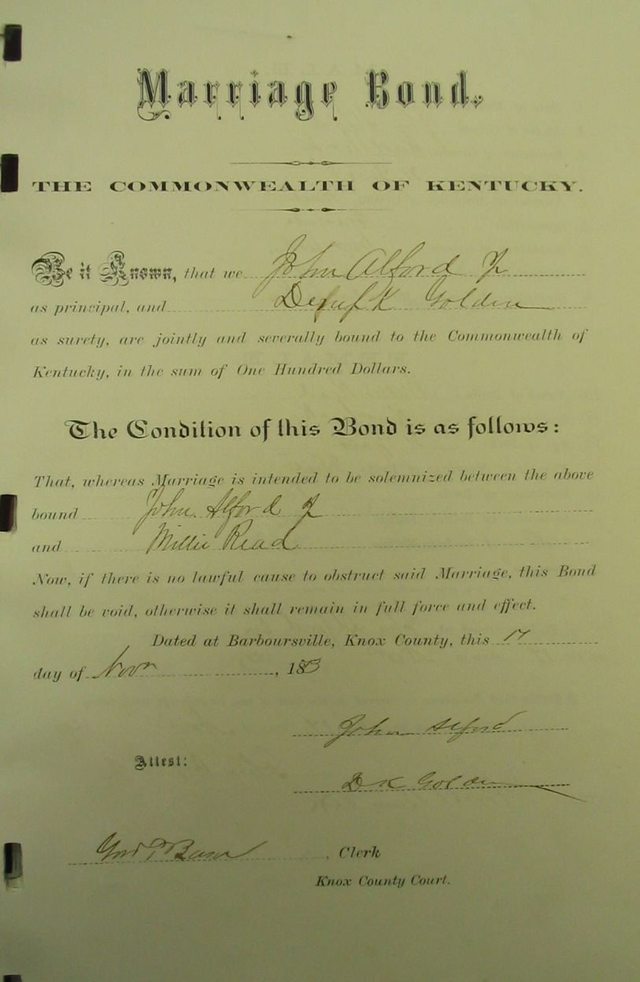 Marriage Bond.
THE COMMONWEALTH OF KENTUCKY.
Be it Known, that we John Alford Jr
as principal, and K Golden
as surety, are jointly and severally bound to the Commonwealth of
Kentucky, in the sum of One Hundred Dollars.
The Condition of this Bond is as follows:
That, whereas Marriage is intended to be solemnized between the above
bound John Alford Jr
and Millie Read
Now, if there is no lawful cause to obstruct said Marriage, this Bond
shall be void, otherwise it shall remain in full force and effect.
Dated at Barboursville, Knox County, this 17
day of Nov , 183
John Alford
Attest:
D K Golden
, Clerk
Knox County Court.